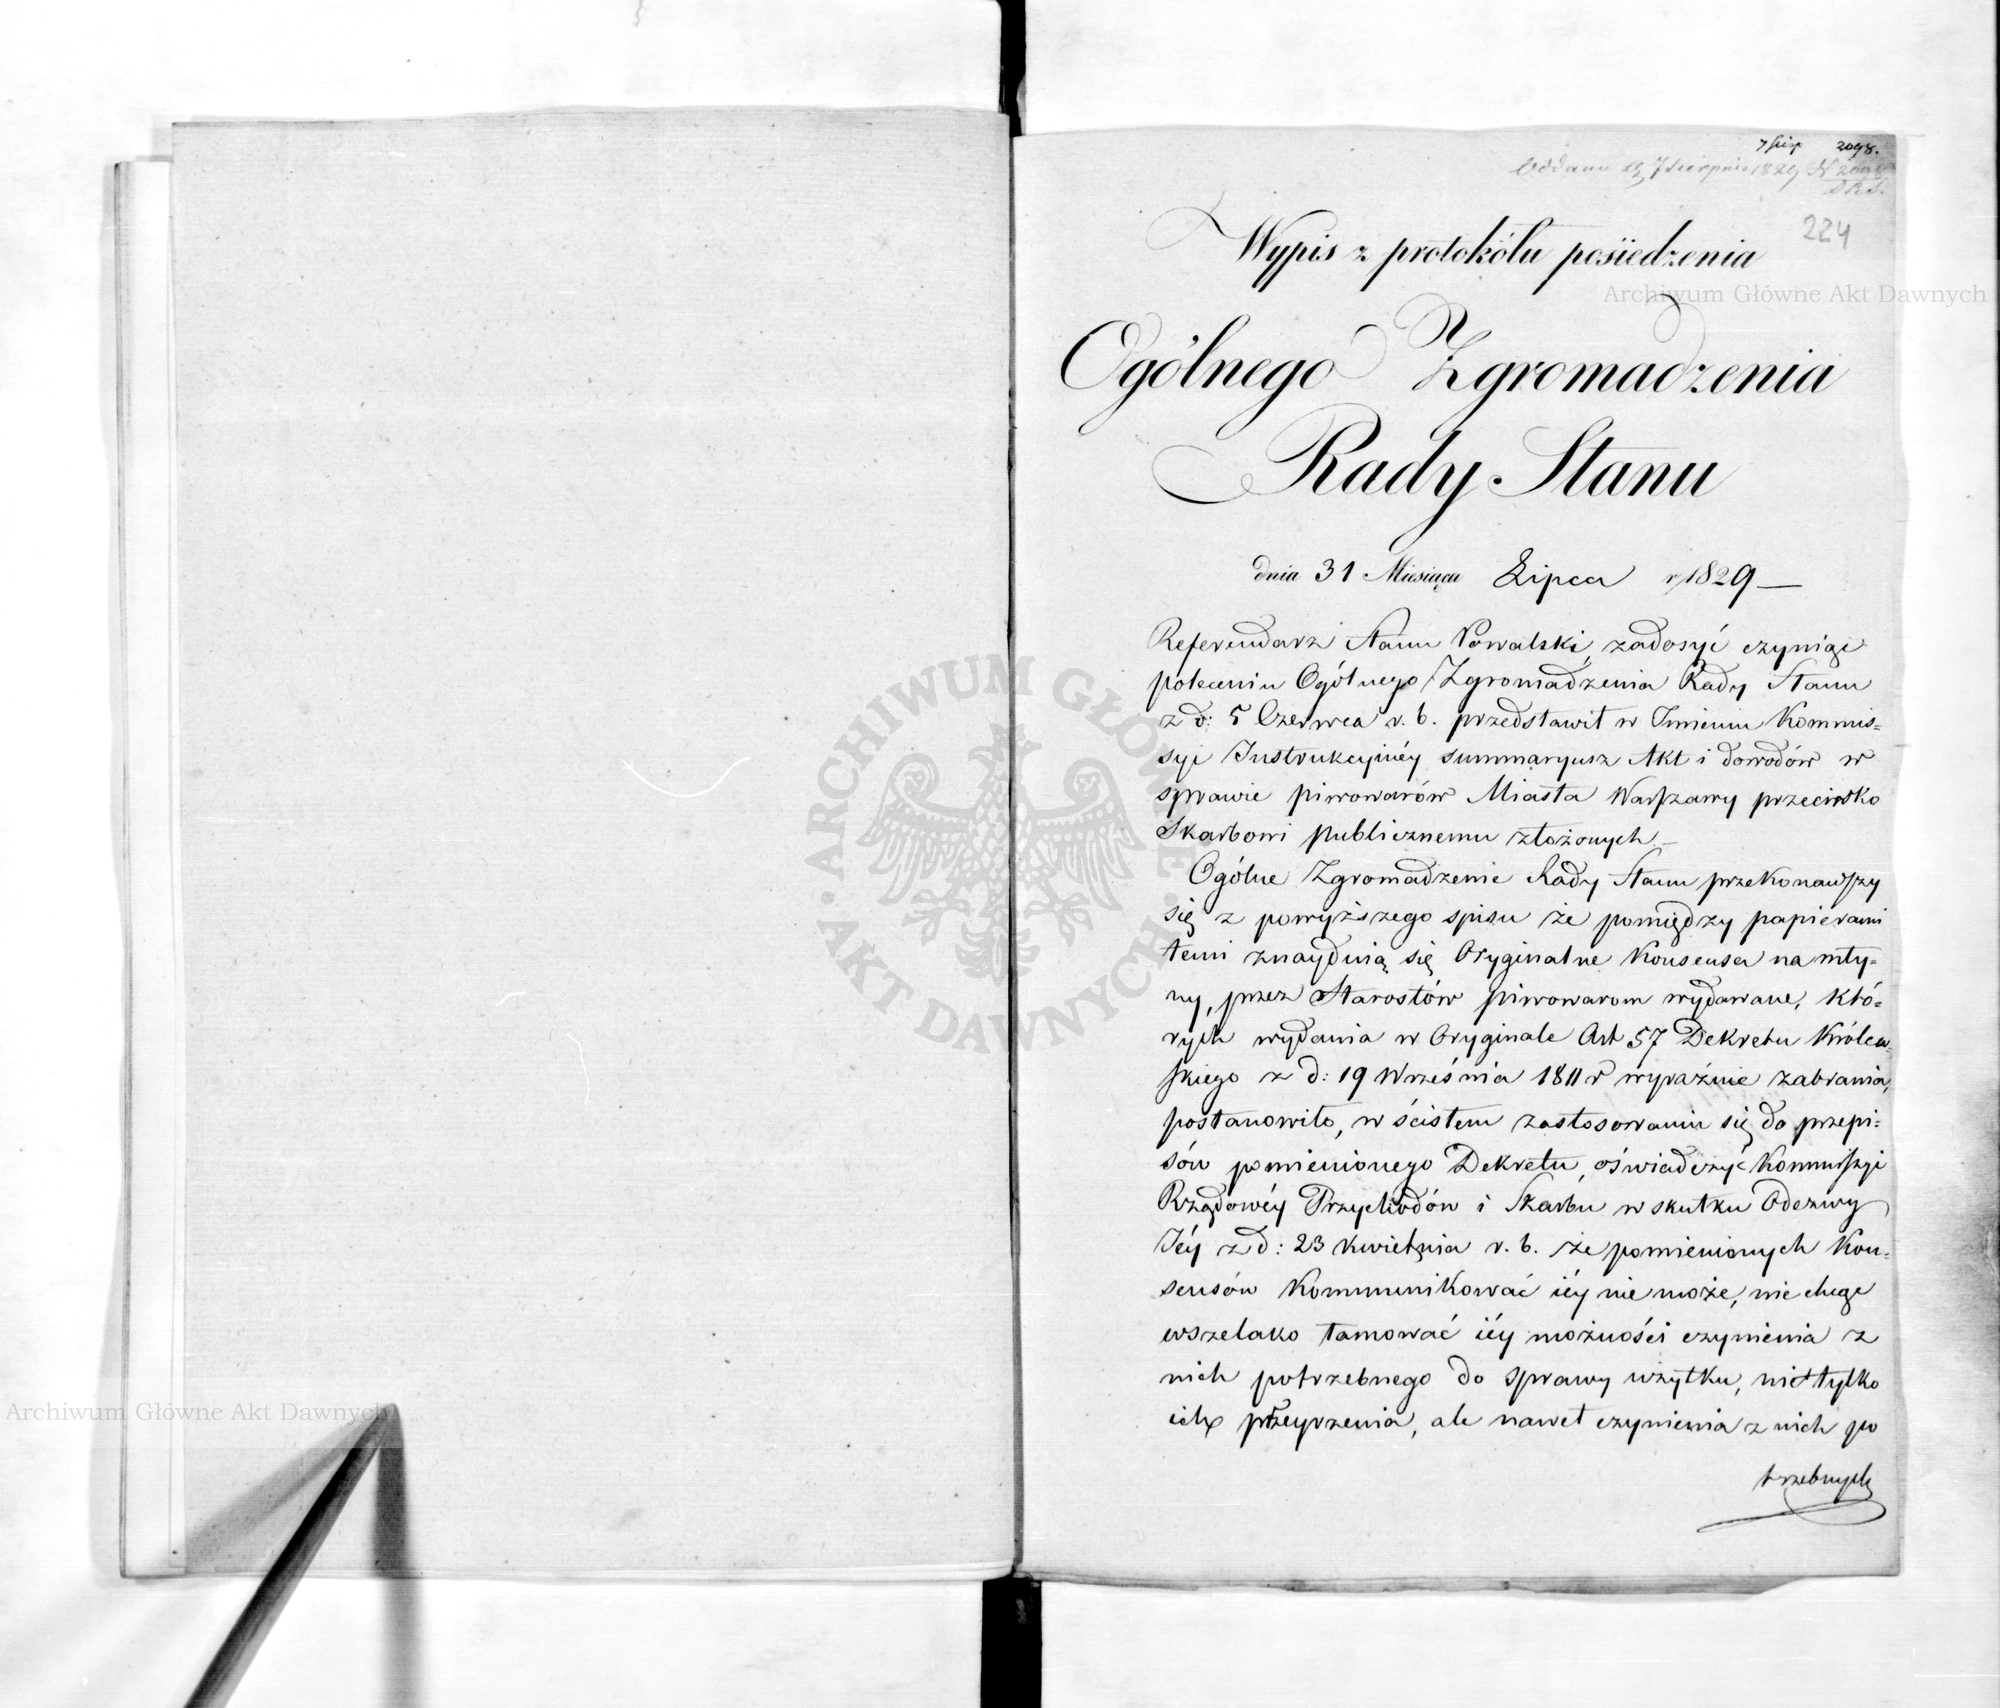 7 Sierp 2098.
Oddano d. 7 Sierpnia 1829 N 2098
224
Wypis z protokółu posiedzenia
Archiwum Główne Akt Dawnych
Ogólnego Zgromadzenia
Rady Stanu
dnia 31 Miesiąca Lipca r. 1829 —
Referendarz Stanu Kowalski, zadosyć czyniąc
poleceniu Ogólnego Zgromadzenia Rady Stanu
z d: 5 Czerwca r. b. przedstawił w Imieniu Kommis=
syi Instrukcyinéy summaryusz Akt i dowodów w
sprawie piwowarów Miasta Warszawy przeciwko
Skarbowi publicznemu złożonych. —
Ogólne Zgromadzenie Rady Stanu przekonawszy
się z powyższego spisu że pomiędzy papierami
temi znayduią się Oryginalne Konsensa na mły=
ny, przez Starostów piwowarom wydawane, któ=
rych wydania w Oryginale Art 57 Dekretu Królew=
skiego z d: 19 Września 1811 r wyraźnie zabrania,
postanowiło, w ścisłem zastosowaniu się do przepi=
sów pomienionego Dekretu, oświadczyć Kommissyi
Rządowéy Przychodów i Skarbu w skutku Odezwy
Iéy z d: 23 Kwietnia r. b. że pomienionych Kon=
sensów Kommunikować iéy nie może, nie chcąc
wszelako tamować iéy możności czynienia z
nich potrzebnego do sprawy użytku, nie tylko
ich przeyrzenia, ale nawet czynienia z nich po
trzebnych
ARCHIWUM GŁÓWNE AKT DAWNYCH
Archiwum Główne Akt Dawnych